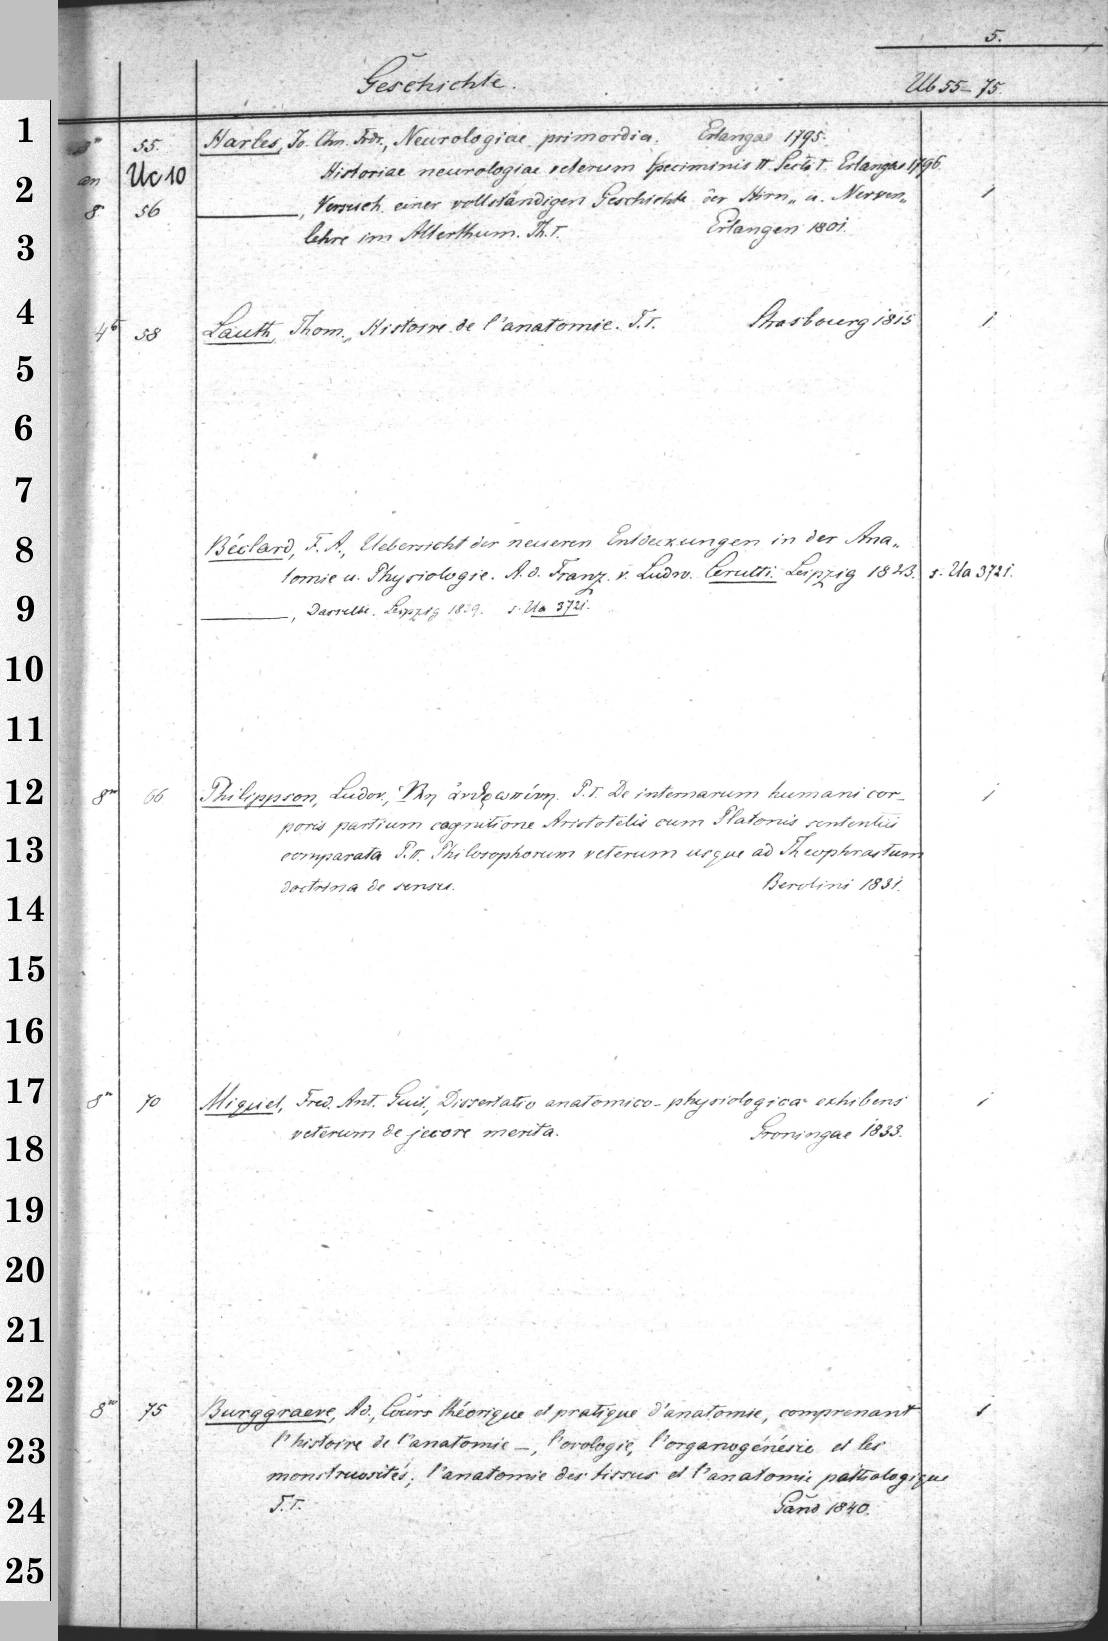 5.
Geschichte.
Ub 55–75.
1
8° 55. Harles, Jo. Chn. Frdr., Neurologiae primordia. Erlangae 1795.
an Uc 10 Historiae neurologiae veterum speciminis II Sectio I. Erlangae 1796.
2
8 56 ———, Versuch einer vollständigen Geschichte der Hirn„ u. Nerven„ 1
3
lehre im Alterthum. Th. I. Erlangen 1801.
4
4to 58 Lauth, Thom., Histoire de l'anatomie. T. I. Strasbourg 1815 1
5
6
7
8
Béclard, F. A., Uebersicht der neueren Entdeckungen in der Ana„
tomie u. Physiologie. A. d. Franz. v. Ludw. Cerutti. Leipzig 1823. s. Ua 3721.
9
———, Dasselbe. Leipzig 1829. s. Ua 3721.
10
11
12
8° 66 Philippson, Ludov., Ὕλη ἀνθρωπίνη. P. I. De internarum humani cor– 1
poris partium cognitione Aristotelis cum Platonis sententiis
13
comparata P. II. Philosophorum veterum usque ad Theophrastum
doctrina de sensu. Berolini 1831.
14
15
16
17
8° 70 Miquel, Fred. Ant. Guil., Dissertatio anatomico–physiologica exhibens 1
veterum de jecore merita. Groningae 1833.
18
19
20
21
22
8° 75 Burggraeve, Ad., Cours théorique et pratique d'anatomie, comprenant 1
23
l'histoire de l'anatomie –, l'ovologie, l'organogénésie et les
monstruosités; l'anatomie des tissus et l'anatomie pathologique
24
T. I. Gand 1840.
25